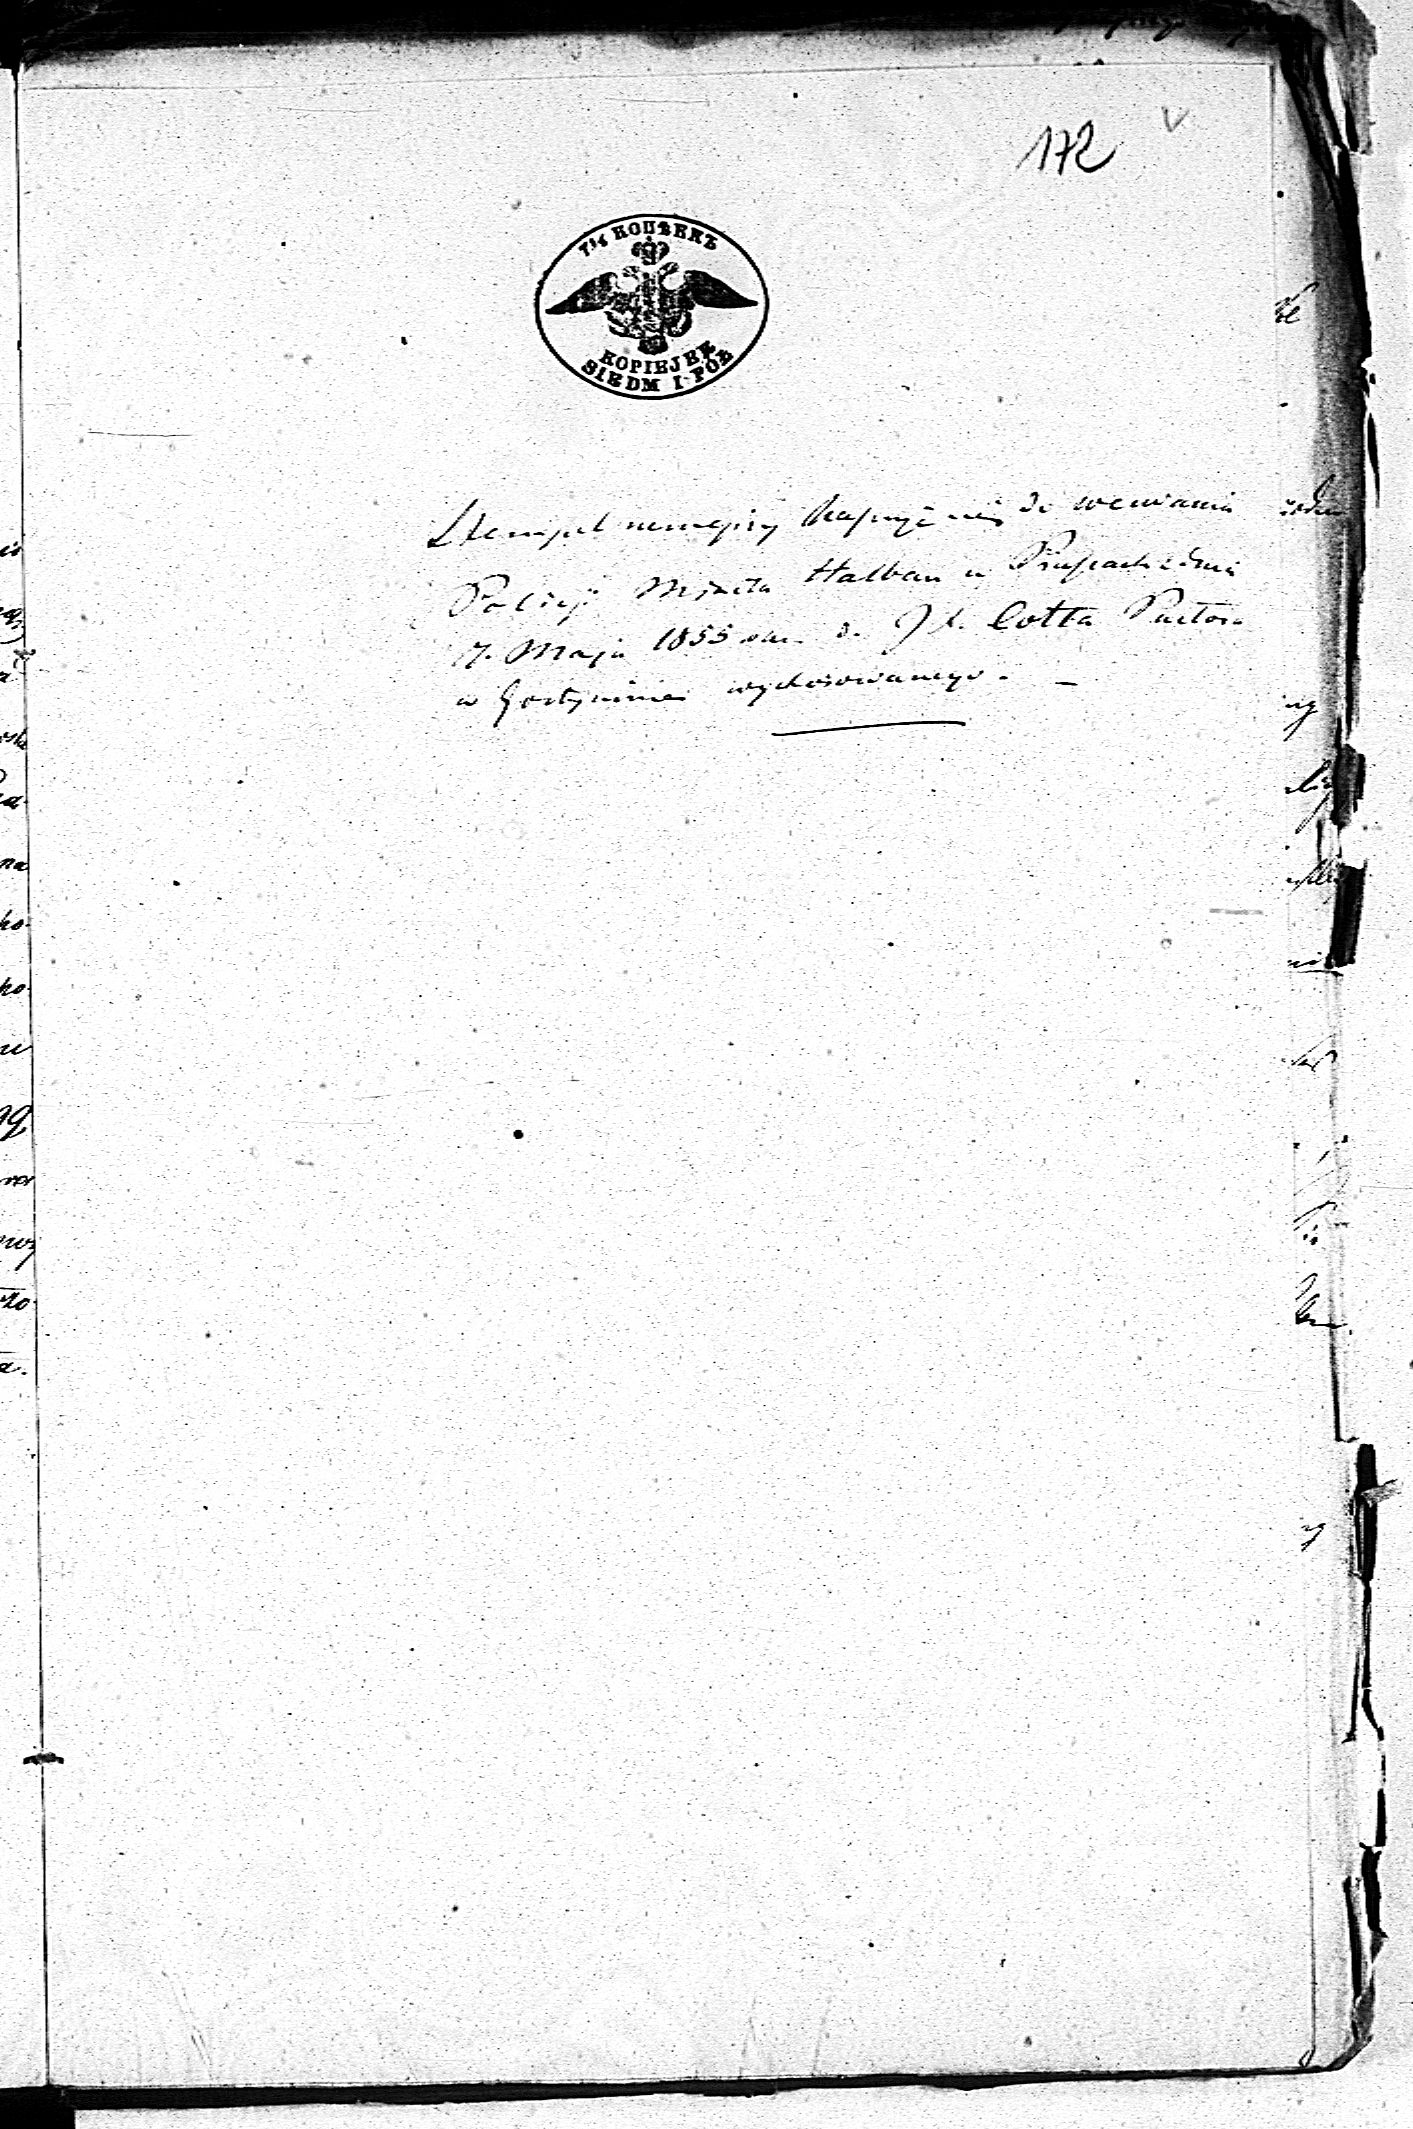 172
7½ КОПѢЕКЪ
KOPIEJEK
SIEDM I PÓŁ
Stempel niniejszy kassuje się do wezwania
Policyi Miasta Halbau w Prusach z dnia
17. Maja 1855 do J. X. Cotta Pastora
w Gostyninie wystosowanego. —